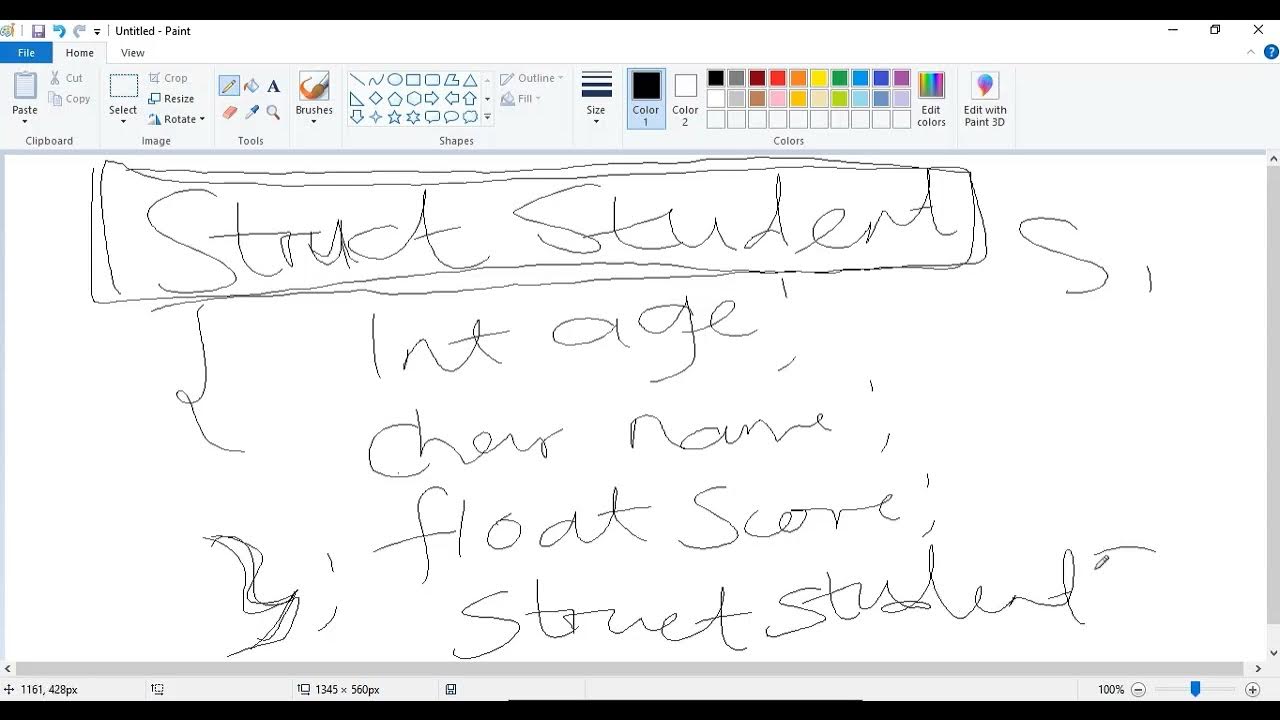 Untitled - Paint
File Home View
Paste Cut Copy Select Crop Resize Rotate Brushes Outline Fill Size Color 1 Color 2 Edit colors Edit with Paint 3D
Clipboard Image Tools Shapes Colors
Struct Student S,
{ Int age;
char name;
float Score;
}; Struct Student
1161, 428px 1345 × 560px 100%